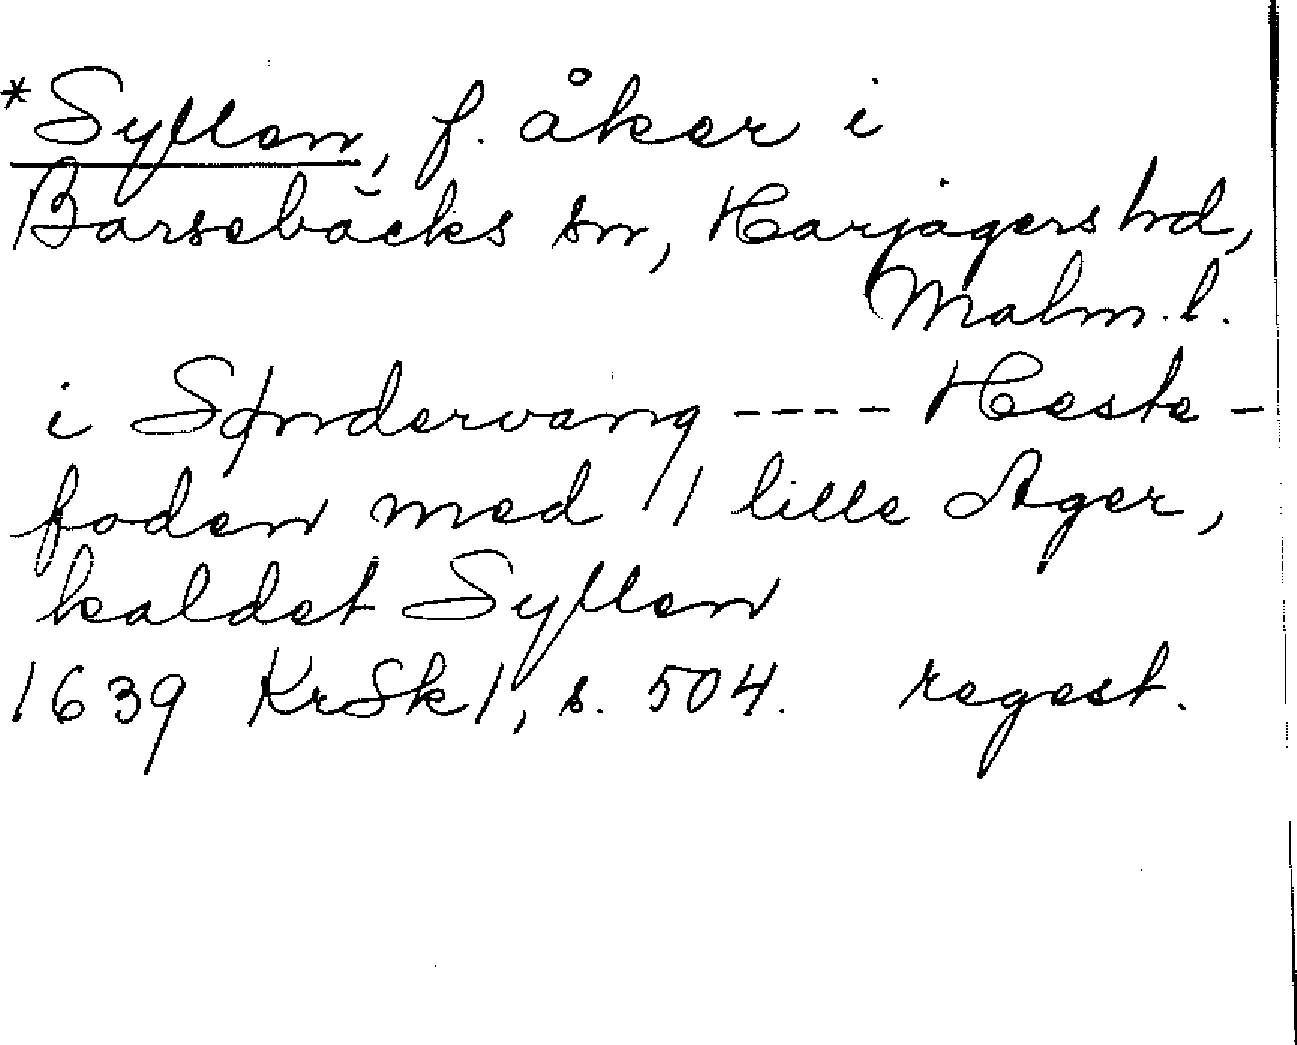 *Syllen, f. åker i
Barsebäcks sn, Harjagers hd,
Malm. l.
i Søndervang ---- Heste-
foden med 1 lille Ager,
kaldet Syllen
1639 KrSk 1, s. 504. regest.